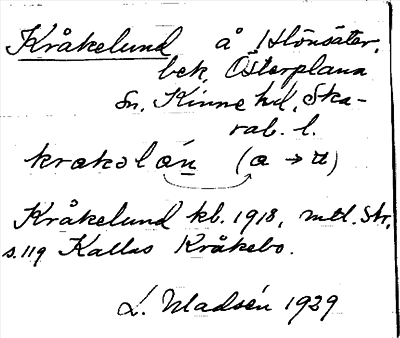 Kråkelund å Hönsäter,
bek. Österplana
sn. Kinne hd, Ska-
rab. l.
krakəlán (a → )
Kråkelund kb. 1918, mtl. Str.
s. 119 Kallas Kråkebo.
L. Madsén 1929